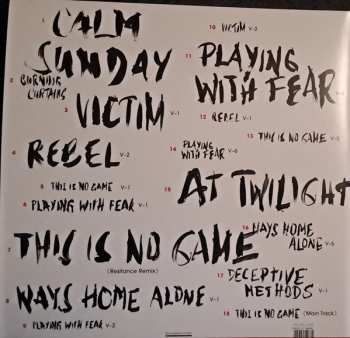 1 CALM
SUNDAY
2 BURNING
CURTAINS
3 VICTIM V-1
4 REBEL V-2
5 THIS IS NO GAME V-1
6 PLAYING WITH FEAR V-1
7 THIS IS NO GAME
(Resitance Remix)
8 WAYS HOME ALONE V-1
9 PLAYING WITH FEAR V-2
10 VICTIM V-3
11 PLAYING
WITH FEAR
12 REBEL V-1
13 THIS IS NO GAME
14 PLAYING
WITH FEAR
15 AT TWILIGHT
16 WAYS HOME
ALONE
17 DECEPTIVE
METHODS V-1
18 THIS IS NO GAME (Main Track)